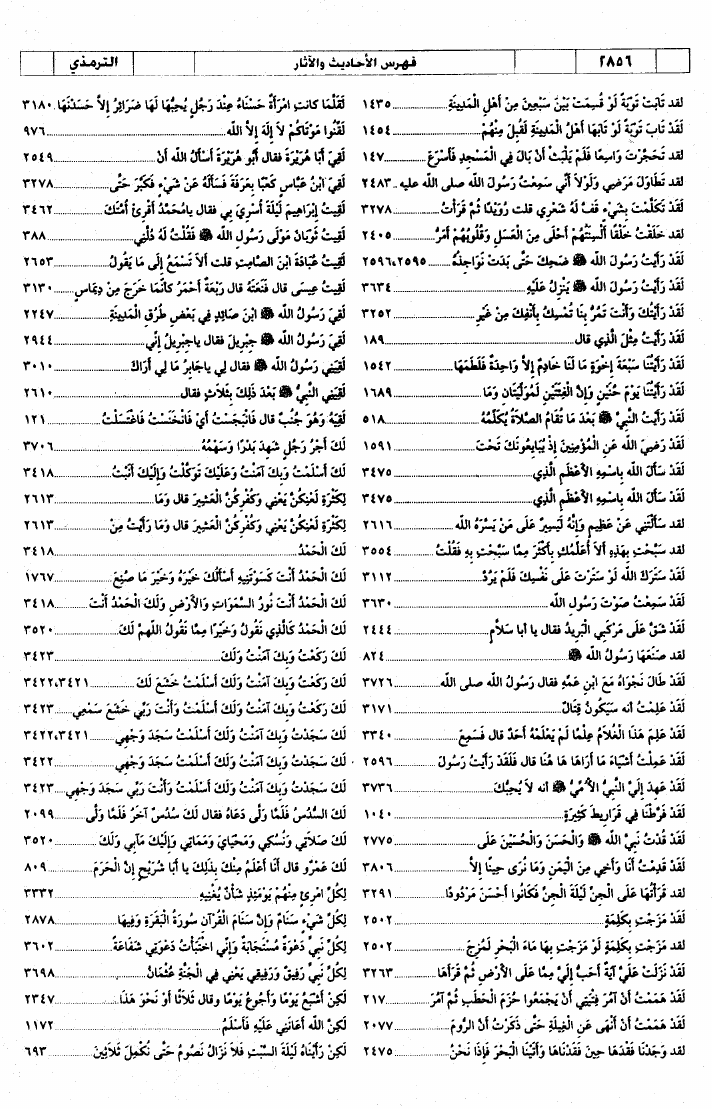 ٢٨٥٦
فهرس الأحاديث والآثار
الترمذي
لقد تابت توبة لو قسمت بين سبعين من أهل المدينة ١٤٣٥
لَقَدْ تَابَ تَوْبَةً لَوْ تَابَهَا أَهْلُ المَدِينَةِ لَقُبِلَ مِنْهُمْ ١٤٥٤
لقد تَحَجَّرْتَ وَاسِعًا فَلَمْ يَلْبَثْ أَنْ بَالَ فِي الْمَسْجِدِ فَأَسْرَعَ ١٤٧
لقد تَطَاوَلَ مَرَضِي وَلَوْلاَ أَنِّي سَمِعْتُ رَسُولَ اللَّه صلى اللَّه عليه ٢٤٨٣
لَقَدْ تَكَلَّمْتَ بِشَيْءٍ قَفَّ لَهُ شَعْرِي قلت رُوَيْدًا ثُمَّ قَرَأْتُ ٣٢٧٨
لقد خَلَقْتُ خَلْقًا أَلْسِنَتُهُمْ أَحْلَى مِنَ الْعَسَلِ وَقُلُوبُهُمْ أَمَرُّ ٢٤٠٥
لَقَدْ رَأَيْتُ رَسُولَ اللَّه ﷺ ضَحِكَ حَتَّى بَدَتْ نَوَاجِذُهُ ٢٥٩٦،٢٥٩٥
لَقَدْ رَأَيْتُ رَسُولَ اللَّه ﷺ يَنْزِلُ عَلَيْهِ ٣٦٣٤
لَقَدْ رَأَيْتُكَ وَأَنْتَ تَمُرُّ بِنَا تُمْسِكُ بِأَنْفِكَ مِنْ غَيْرِ ٣٢٥٢
لَقَدْ رَأَيْتُ مِثْلَ الَّذِي قال ١٨٩
لقد رَأَيْتُنَا سَبْعَةَ إِخْوَةٍ مَا لَنَا خَادِمٌ إِلاَّ وَاحِدَةٌ فَلَطَمَهَا ١٥٤٢
لَقَدْ رَأَيْتُنَا يَوْمَ حُنَيْنٍ وَإِنَّ الْفِئَتَيْنِ لَمُوَلِّيَتَانِ وَمَا ١٦٨٩
لَقَدْ رَأَيْتُ النَّبِيَّ ﷺ بَعْدَ مَا تُقَامُ الصَّلاَةُ يُكَلِّمُهُ ٥١٨
لَقَدْ رَضِيَ اللَّه عَنِ الْمُؤْمِنِينَ إِذْ يُبَايِعُونَكَ تَحْتَ ١٥٩١
لَقَدْ سَأَلَ اللَّه بِاسْمِهِ الأَعْظَمِ الَّذِي ٣٤٧٥
لَقَدْ سَأَلَ اللَّه بِاسْمِهِ الأَعْظَمِ الَّذِي ٣٤٧٥
لقد سَأَلْتَنِي عَنْ عَظِيمٍ وَإِنَّهُ لَيَسِيرٌ عَلَى مَنْ يَسَّرَهُ اللَّه ٢٦١٦
لقد سَبَّحْتِ بِهَذِهِ أَلاَ أُعَلِّمُكِ بِأَكْثَرَ مِمَّا سَبَّحْتِ بِهِ فَقُلْتُ ٣٥٥٤
لَقَدْ سَتَرَكَ اللَّه لَوْ سَتَرْتَ عَلَى نَفْسِكَ فَلَمْ يَرُدَّ ٣١١٢
لَقَدْ سَمِعْتُ صَوْتَ رَسُولِ اللَّه ٣٦٣٠
لَقَدْ شَقَّ عَلَى مَرْكَبِي الْبَرِيدُ فقال يا أبا سَلاَّمٍ ٢٤٤٤
لقد صَنَعَهَا رَسُولُ اللَّه ﷺ ٨٢٤
لَقَدْ طَالَ نَجْوَاهُ مَعَ ابْنِ عَمِّهِ فقال رَسُولُ اللَّه صلى اللَّه ٣٧٢٦
لَقَدْ عَلِمْتُ أنه سَيَكُونُ قِتَالٌ ٣١٧١
لَقَدْ عَلِمَ هَذَا الْغُلاَمُ عِلْمًا لَمْ يَعْلَمْهُ أَحَدٌ قال فَسَمِعَ ٣٣٤٠
لَقَدْ عَمِلْتُ أَشْيَاءَ مَا أَرَاهَا هَا هُنَا قال فَلَقَدْ رَأَيْتُ رَسُولَ ٢٥٩٦
لَقَدْ عَهِدَ إِلَيَّ النَّبِيُّ الأُمِّيُّ ﷺ أنه لاَ يُحِبُّكَ ٣٧٣٦
لَقَدْ فَرَّطْنَا فِي قَرَارِيطَ كَثِيرَةٍ ١٠٤٠
لَقَدْ قُدْتُ نَبِيَّ اللَّه ﷺ وَالْحَسَنَ وَالْحُسَيْنَ عَلَى ٢٧٧٥
لَقَدْ قَدِمْتُ أَنَا وَأَخِي مِنَ الْيَمَنِ وَمَا نُرَى حِينًا إِلاَّ ٣٨٠٦
لقد قَرَأْتُهَا عَلَى الْجِنِّ لَيْلَةَ الْجِنِّ فَكَانُوا أَحْسَنَ مَرْدُودًا ٣٢٩١
لَقَدْ مَزَجْتِ بِكَلِمَةٍ ٢٥٠٢
لقد مَزَجْتِ بِكَلِمَةٍ لَوْ مَزَجْتِ بِهَا مَاءَ الْبَحْرِ لَمُزِجَ ٢٥٠٢
لَقَدْ نَزَلَتْ عَلَيَّ آيَةٌ أَحَبُّ إِلَيَّ مِمَّا عَلَى الأَرْضِ ثُمَّ قَرَأَهَا ٣٢٦٣
لَقَدْ هَمَمْتُ أَنْ آمُرَ فِتْيَتِي أَنْ يَجْمَعُوا حُزَمَ الْحَطَبِ ثُمَّ آمُرَ ٢١٧
لَقَدْ هَمَمْتُ أَنْ أَنْهَى عَنِ الْغِيلَةِ حَتَّى ذَكَرْتُ أَنَّ الرُّومَ ٢٠٧٧
لقد وَجَدْنَا فَقْدَهَا حِينَ فَقَدْنَاهَا وَأَتَيْنَا الْبَحْرَ فَإِذَا نَحْنُ ٢٤٧٥
لَقَلَّمَا كانت امْرَأَةٌ حَسْنَاءُ عِنْدَ رَجُلٍ يُحِبُّهَا لَهَا ضَرَائِرُ إِلاَّ حَسَدْنَهَا ٣١٨٠
لَقِّنُوا مَوْتَاكُمْ لاَ إِلَهَ إِلاَّ اللَّه ٩٧٦
لَقِيَ أَبَا هُرَيْرَةَ فقال أَبُو هُرَيْرَةَ أَسْأَلُ اللَّه أَنْ ٢٥٤٩
لَقِيَ ابْنُ عَبَّاسٍ كَعْبًا بِعَرَفَةَ فَسَأَلَهُ عَنْ شَيْءٍ فَكَبَّرَ حَتَّى ٣٢٧٨
لَقِيتُ إِبْرَاهِيمَ لَيْلَةَ أُسْرِيَ بِي فقال يامُحَمَّدُ أَقْرِئْ أُمَّتَكَ ٣٤٦٢
لَقِيتُ ثَوْبَانَ مَوْلَى رَسُولِ اللَّه ﷺ فَقُلْتُ لَهُ دُلَّنِي ٣٨٨
لَقِيتُ عُبَادَةَ ابْنَ الصَّامِتِ قلت أَلاَ تَسْمَعُ إِلَى مَا يَقُولُ ٢٦٥٣
لَقِيتُ عِيسَى قال فَنَعَتَهُ قال رَبْعَةٌ أَحْمَرُ كَأَنَّمَا خَرَجَ مِنْ دِيمَاسٍ ٣١٣٠
لَقِيَ رَسُولُ اللَّه ﷺ ابْنَ صَائِدٍ فِي بَعْضِ طُرُقِ الْمَدِينَةِ ٢٢٤٧
لَقِيَ رَسُولُ اللَّه ﷺ جِبْرِيلَ فقال ياجِبْرِيلُ إِنِّي ٢٩٤٤
لَقِيَنِي رَسُولُ اللَّه ﷺ فقال لِي ياجَابِرُ مَا لِي أَرَاكَ ٣٠١٠
لَقِيَنِي النَّبِيُّ ﷺ بَعْدَ ذَلِكَ بِثَلاَثٍ فقال ٢٦١٠
لَقِيَهُ وَهُوَ جُنُبٌ قال فَانْبَجَسْتُ أَيْ فَانْخَنَسْتُ فَاغْتَسَلْتُ ١٢١
لَكَ أَجْرُ رَجُلٍ شَهِدَ بَدْرًا وَسَهْمُهُ ٣٧٠٦
لَكَ أَسْلَمْتُ وَبِكَ آمَنْتُ وَعَلَيْكَ تَوَكَّلْتُ وَإِلَيْكَ أَنَبْتُ ٣٤١٨
لِكَثْرَةِ لَعْنِكُنَّ يَعْنِي وَكُفْرِكُنَّ الْعَشِيرَ قال وَمَا ٢٦١٣
لِكَثْرَةِ لَعْنِكُنَّ يَعْنِي وَكُفْرِكُنَّ الْعَشِيرَ قال وَمَا رَأَيْتُ مِنْ ٢٦١٣
لَكَ الْحَمْدُ ٣٤١٨
لَكَ الْحَمْدُ أَنْتَ كَسَوْتَنِيهِ أَسْأَلُكَ خَيْرَهُ وَخَيْرَ مَا صُنِعَ ١٧٦٧
لَكَ الْحَمْدُ أَنْتَ نُورُ السَّمَوَاتِ وَالأَرْضِ وَلَكَ الْحَمْدُ أَنْتَ ٣٤١٨
لَكَ الْحَمْدُ كَالَّذِي نَقُولُ وَخَيْرًا مِمَّا نَقُولُ اللَّهمَّ لَكَ ٣٥٢٠
لَكَ رَكَعْتُ وَبِكَ آمَنْتُ وَلَكَ ٣٤٢٣
لَكَ رَكَعْتُ وَبِكَ آمَنْتُ وَلَكَ أَسْلَمْتُ خَشَعَ لَكَ ٣٤٢٢،٣٤٢١
لَكَ رَكَعْتُ وَبِكَ آمَنْتُ وَلَكَ أَسْلَمْتُ وَأَنْتَ رَبِّي خَشَعَ سَمْعِي ٣٤٢٣
لَكَ سَجَدْتُ وَبِكَ آمَنْتُ وَلَكَ أَسْلَمْتُ سَجَدَ وَجْهِي ٣٤٢٢،٣٤٢١
لَكَ سَجَدْتُ وَبِكَ آمَنْتُ وَلَكَ أَسْلَمْتُ سَجَدَ وَجْهِي ٣٤٢٢
لَكَ سَجَدْتُ وَبِكَ آمَنْتُ وَلَكَ أَسْلَمْتُ وَأَنْتَ رَبِّي سَجَدَ وَجْهِي ٣٤٢٣
لَكَ السُّدُسُ فَلَمَّا وَلَّى دَعَاهُ فقال لَكَ سُدُسٌ آخَرُ فَلَمَّا وَلَّى ٢٠٩٩
لَكَ صَلاَتِي وَنُسُكِي وَمَحْيَايَ وَمَمَاتِي وَإِلَيْكَ مَآبِي وَلَكَ ٣٥٢٠
لَكَ عَمْرٌو قال أَنَا أَعْلَمُ مِنْكَ بِذَلِكَ يا أبا شُرَيْحٍ إِنَّ الْحَرَمَ ٨٠٩
لِكُلِّ امْرِئٍ مِنْهُمْ يَوْمَئِذٍ شَأْنٌ يُغْنِيهِ ٣٣٣٢
لِكُلِّ شَيْءٍ سَنَامٌ وَإِنَّ سَنَامَ الْقُرْآنِ سُورَةُ الْبَقَرَةِ وَفِيهَا ٢٨٧٨
لِكُلِّ نَبِيٍّ دَعْوَةٌ مُسْتَجَابَةٌ وَإِنِّي اخْتَبَأْتُ دَعْوَتِي شَفَاعَةً ٣٦٠٢
لِكُلِّ نَبِيٍّ رَفِيقٌ وَرَفِيقِي يَعْنِي فِي الْجَنَّةِ عُثْمَانُ ٣٦٩٨
لَكِنْ أَشْبَعُ يَوْمًا وَأَجُوعُ يَوْمًا وقال ثَلاَثًا أَوْ نَحْوَ هَذَا ٢٣٤٧
لَكِنَّ اللَّه أَعَانَنِي عَلَيْهِ فَأَسْلَمُ ١١٧٢
لَكِنْ رَأَيْنَاهُ لَيْلَةَ السَّبْتِ فَلاَ نَزَالُ نَصُومُ حَتَّى نُكْمِلَ ثَلاَثِينَ ٦٩٣